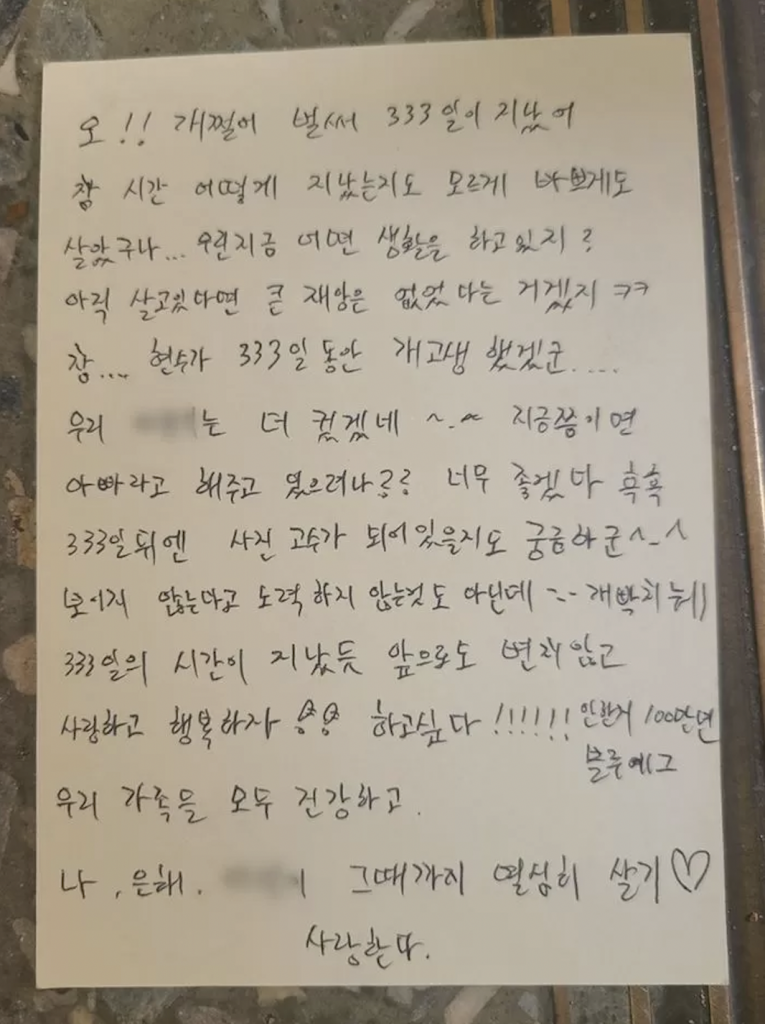 오!! 개쩔어 벌써 333일이 지났어
참 시간 어떻게 지났는지도 모르게 바쁘게도
살았구나... 우린지금 어떤 생활을 하고있지?
아직 살고있다면 큰 재앙은 없었다는 거겠지 ㅋㅋ
참.... 현수가 333일동안 개고생 했겠군.....
우리 는 더 컸겠네 ~.~ 지금쯤이면
아빠라고 해주고 있으려나?? 너무 좋겠다 흑흑
333일뒤엔 사진 고수가 되어있을지도 궁금하군^-^
보이지 않는다고 노력하지 않는것도 아닌데 --
333일의 시간이 지났듯 앞으로도 변치않고
사랑하고 행복하자 하고싶다!!!!!! 안한지 100만년
블루에그
우리 가족들 모두 건강하고.
나, 은혜. 그때까지 열심히 살기♡
사랑한다.